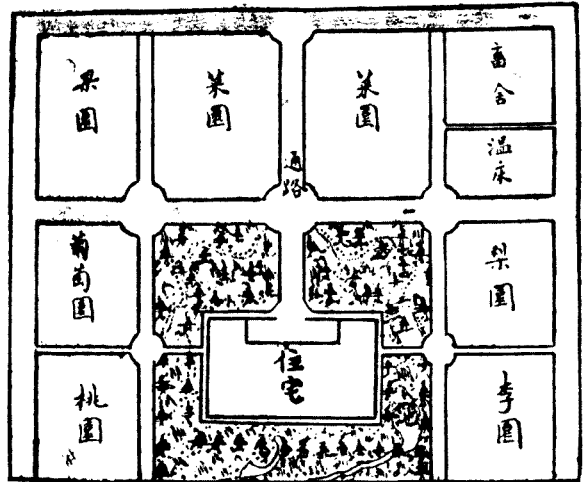 果園
菜園
菜園
畜舍
温床
通路
葡萄園
梨園
住宅
桃園
李園